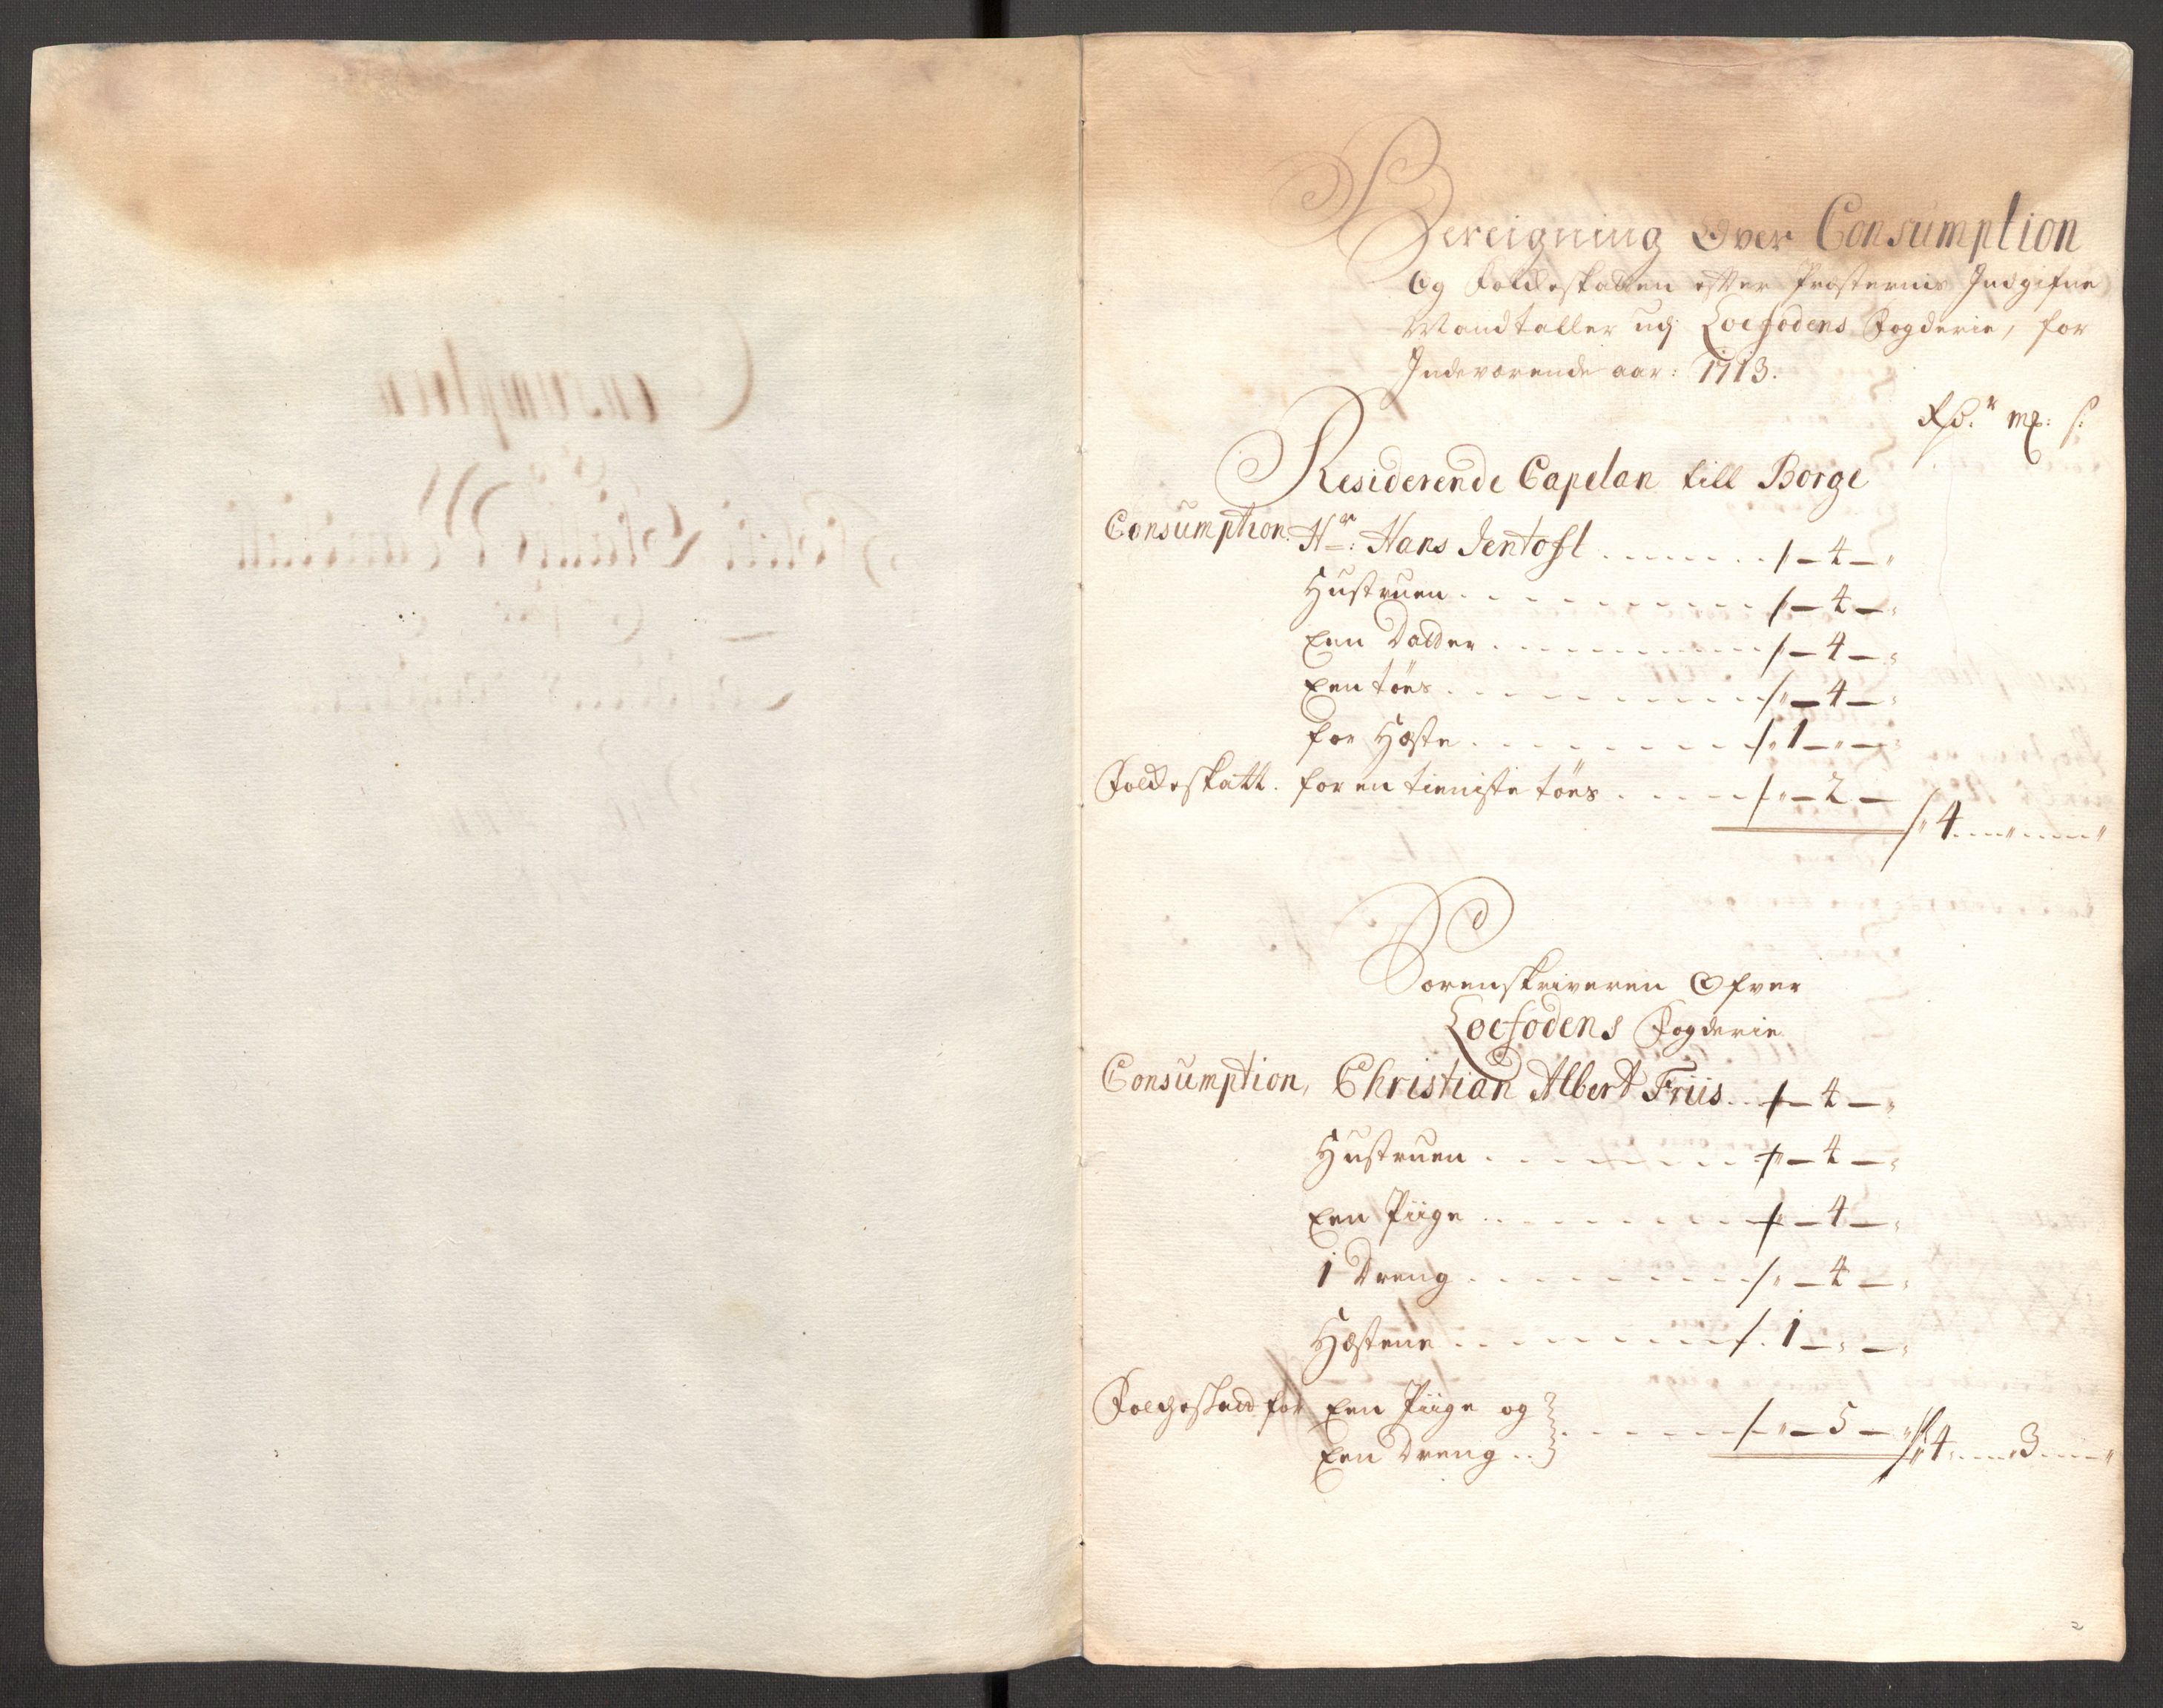 Bereigning Over Consumption
Og Folckeskatten efter Præsternis Indgifne
Mandtaller udj Loefodens Fogderie, for
Indeværende aar: 1713.
Rdr mk: s:
Residerende Capelan till Borge
Consumption: Hr: Hans Jentoft ....... - 4 - "
Hustruen ....... - 4 - "
Een Datter ....... - 4 - "
Een töes ....... " - 4 - "
for Heste ....... " 1 - " - "
Folckeskatt. for en tieniste töes ....... " - 2 -
" 4 ... " ... "
Sorenskriveren Ofver
Loefodens Fogderie
Consumption, Christian Albert Friis ... - 4 - "
Hustruen ....... " - 4 - "
Een Piige ....... - 4 - "
1 Dreng ....... " - 4 - "
Hestene ....... 1 - " - "
Folcheskatt for Een Piige og
Een Dreng .. ....... " - 5 - " 4 ... 3 ... "